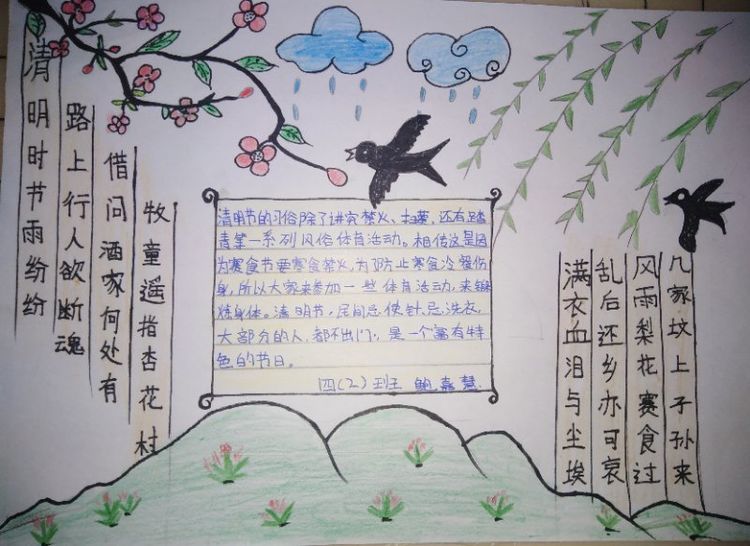 清明时节雨纷纷
路上行人欲断魂
借问酒家何处有
牧童遥指杏花村
清明节的习俗除了讲究禁火、扫墓,还有踏
青等一系列风俗体育活动。相传这是因
为寒食节要寒食禁火,为了防止寒食冷餐伤
身,所以大家来参加一些体育活动,来锻
炼身体。清明节,民间忌使针,忌洗衣,
大部分的人,都不出门,是一个富有特
色的节日。
四(2)班 鲍嘉慧
满衣血泪与尘埃
乱后还乡亦可哀
风雨梨花赛食过
几家坟上子孙来